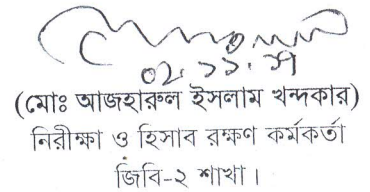 ০২.১১.১৭
(মোঃ আজহারুল ইসলাম খন্দকার)
নিরীক্ষা ও হিসাব রক্ষণ কর্মকর্তা
জিবি-২ শাখা।